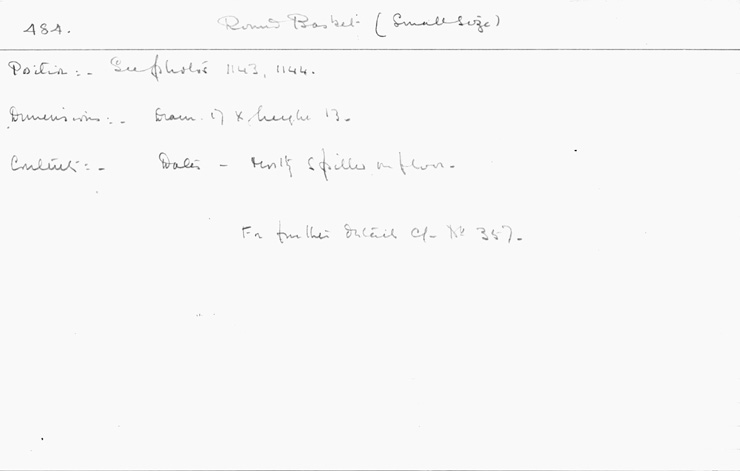 484. Round Basket (Small Size)
Position :- See photos 1143, 1144.
Dimensions :- Diam. 17 x height 13.
Contents :- Dates - mostly spilled on floor.
For further details cf- No 357.